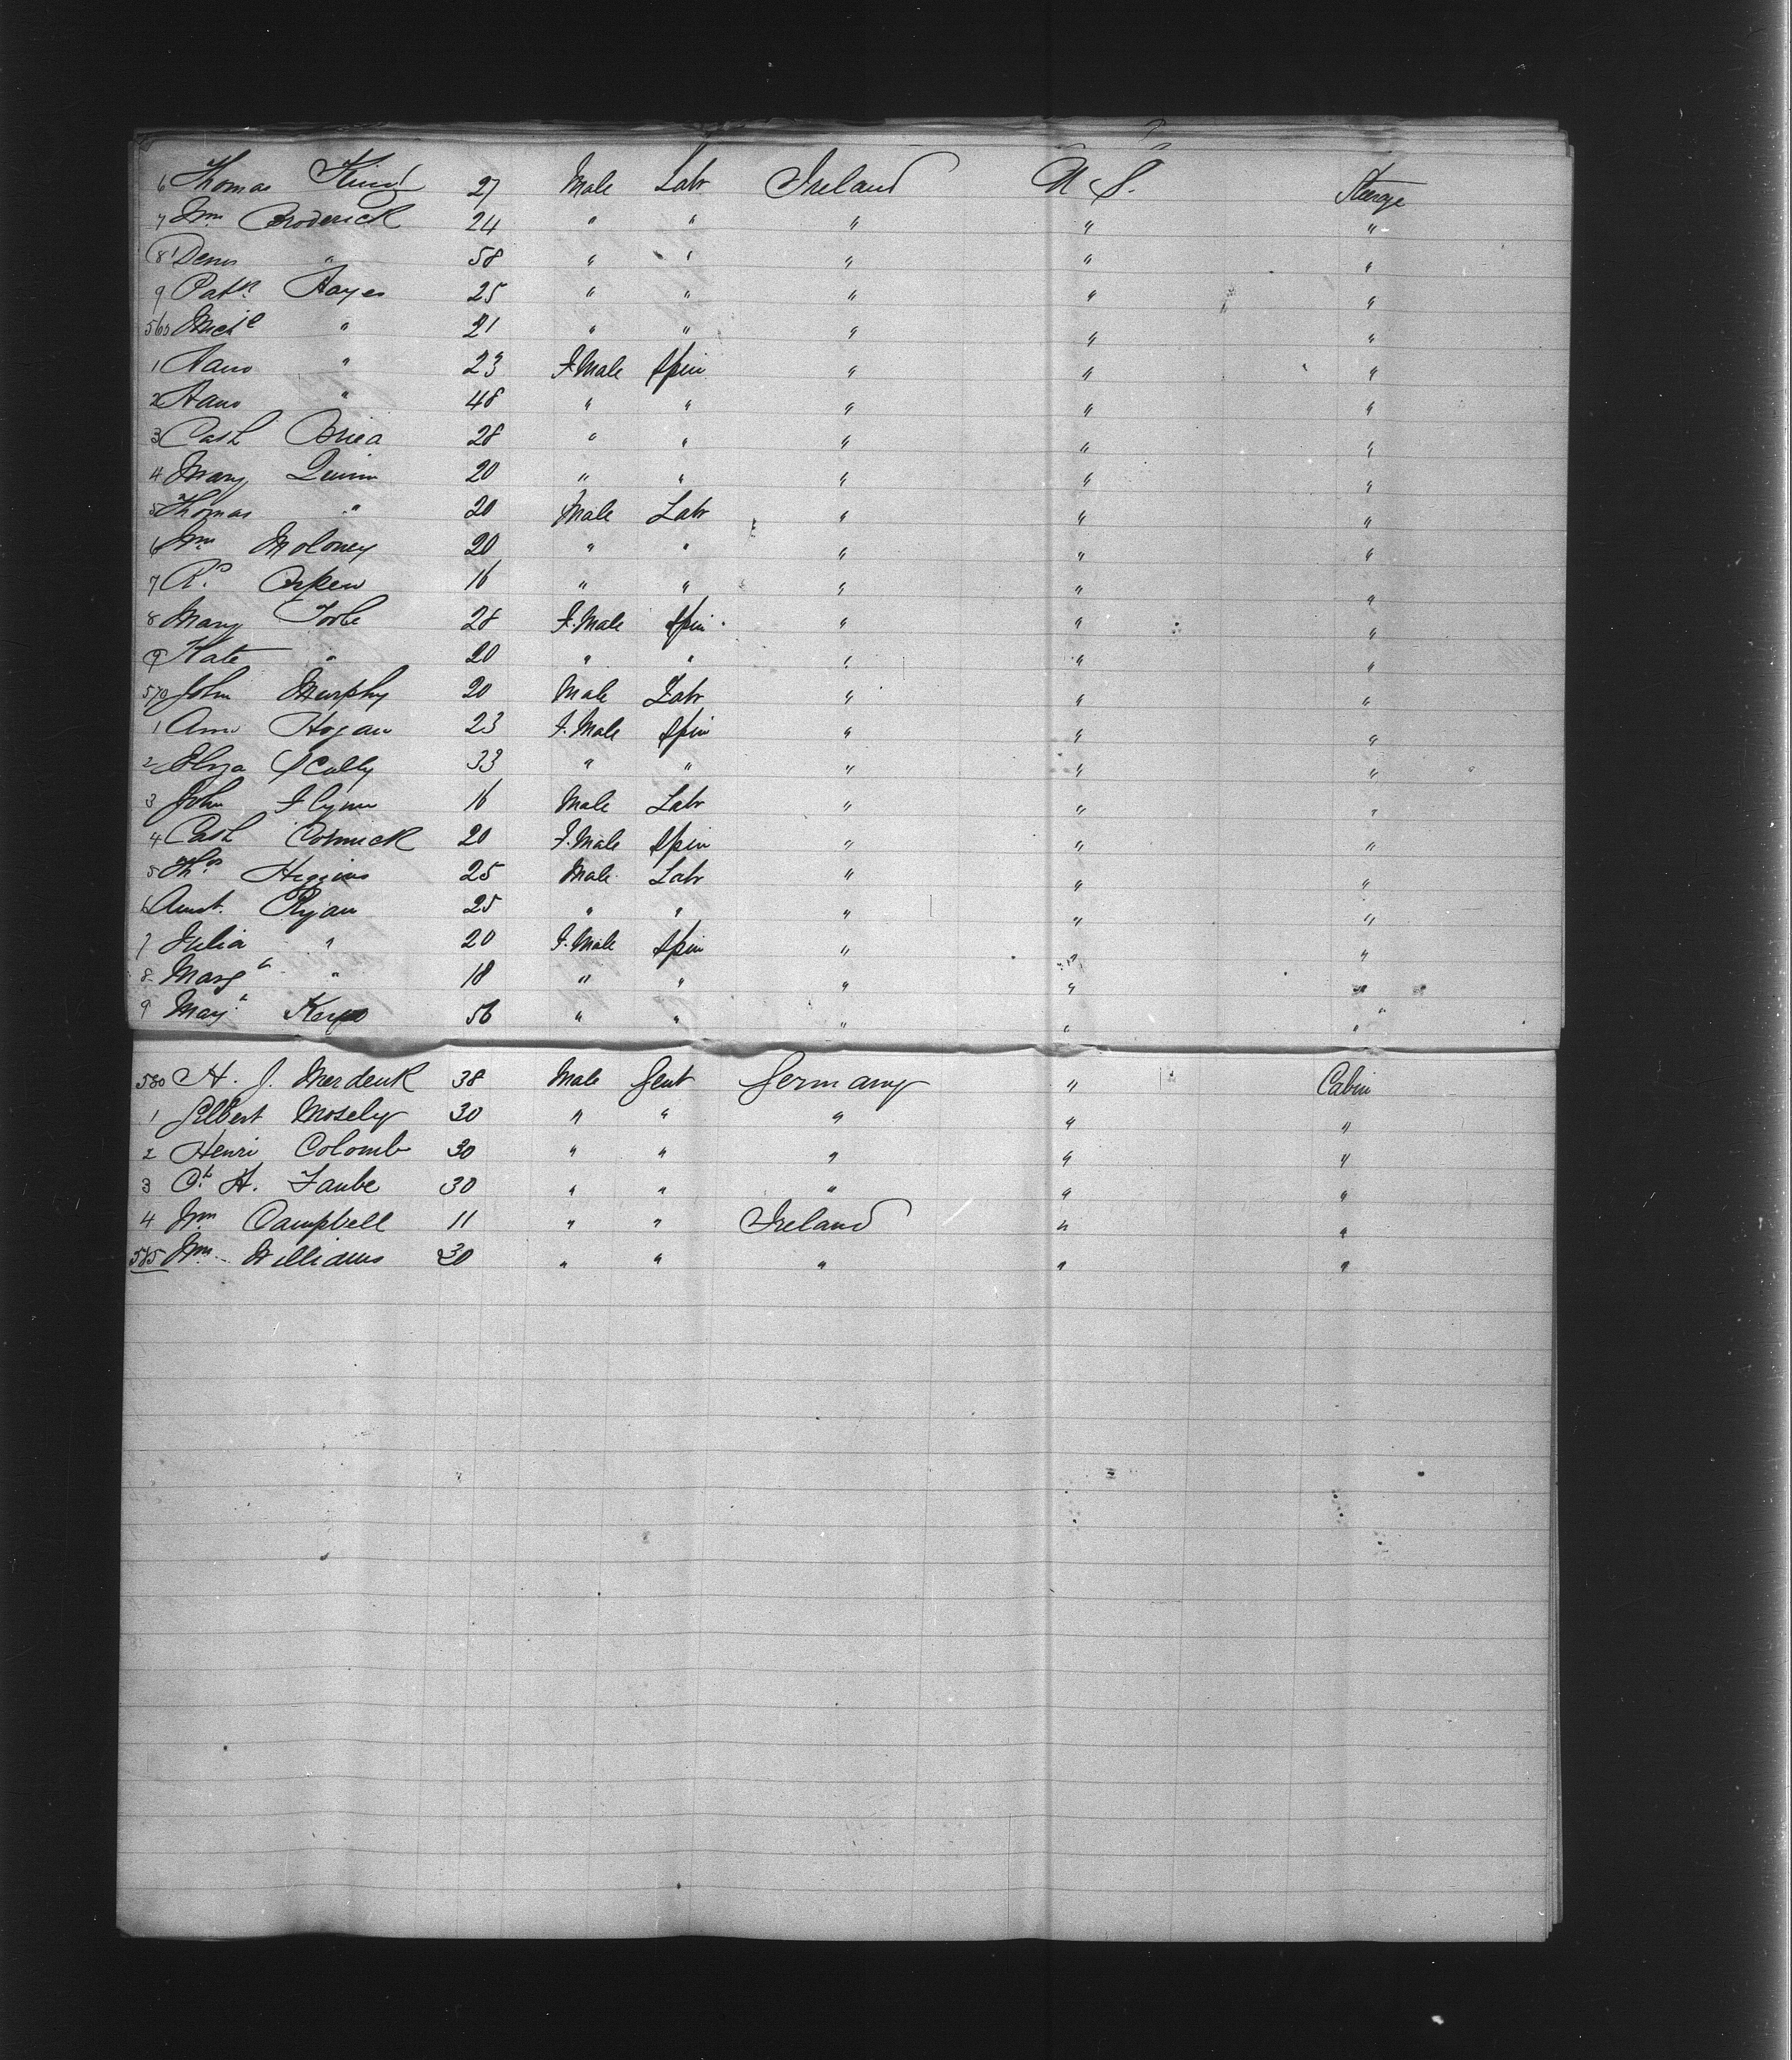 6 Thomas King 27 Male Labr Ireland U S. Steerage
7 Wm Broderick 24 " " " " "
8 Denis " 58 " " " " "
9 Patk Hayes 25 " " " " "
560 Michl " 21 " " " " "
1 " 23 F. Male Spin " " "
2 " 48 " " " " "
3 Cath 28 " " " " "
4 Mary Quinn 20 " " " " "
5 Thomas " 20 Male Labr " " "
6 Wm Moloney 20 " " " " "
7 16 " " " " "
8 Mary Toole 28 F. Male Spin " " "
9 Kate " 20 " " " " "
570 John Murphy 20 Male Labr " " "
1 Ann Hogan 23 F. Male Spin " " "
2 Eliza Scully 33 " " " " "
3 John Flynn 16 Male Labr " " "
4 Cath Cormick 20 F. Male Spin " " "
5 Thos Higgins 25 Male Labr " " "
6 Ryan 25 " " " " "
7 Julia " 20 F. Male Spin " " "
8 Margt " 18 " " " " "
9 56 " " " " "
580 H. J. Merdenk 38 Male Gent Germany " Cabin
1 Gilbert Mosely 30 " " " " "
2 Henri Colomb 30 " " " " "
3 H. Taube 30 " " " " "
4 Wm Campbell 11 " " Ireland " "
585 Wm Williams 30 " " " " "